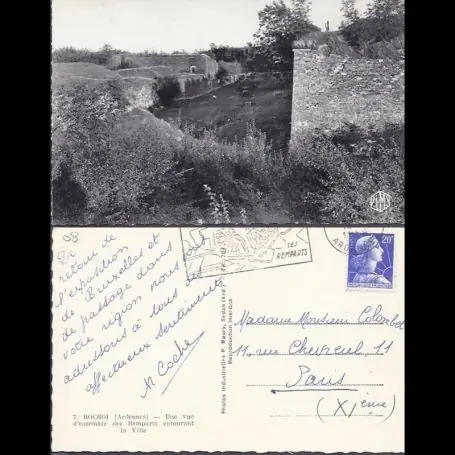 PIMA
08
De
retour de
l'exposition
de Bruxelles et
de passage dans
votre région nous
adressons à tous
affectueux sentiments
M Coche
7. ROCROI (Ardennes) — Une vue
d'ensemble des Remparts entourant
la Ville
Photos industrielles P. Maury, Sedan (Ard.)
Reproduction interdite
SES
REMPARTS
20F
Madame Monsieur Colombet
11, rue Chevreul, 11
Paris
(XIème)